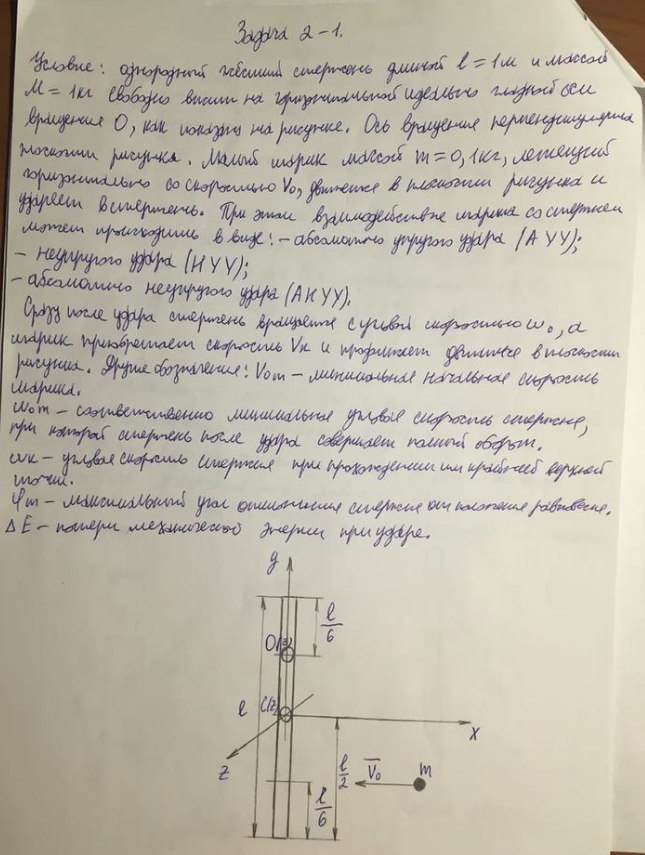 Задача 2-1.
Условие: однородный жёсткий стержень длиной l = 1м и массой
M = 1кг свободно висит на горизонтальной идеально гладкой оси
вращения O, как показано на рисунке. Ось вращения перпендикулярна
плоскости рисунка. Малый шарик массой m = 0,1кг, летящий
горизонтально со скоростью V₀, движется в плоскости рисунка и
ударяет в стержень. При этом взаимодействие шарика со стержнем
может происходить в виде: - абсолютно упругого удара (АУУ);
- неупругого удара (НУУ);
- абсолютно неупругого удара (АНУУ).
Сразу после удара стержень вращается с угловой скоростью ω₀, а
шарик приобретает скорость Vк и продолжает движение в плоскости
рисунка. Другие обозначения: V₀m - минимальная начальная скорость
шарика.
ω₀m - соответственно минимальная угловая скорость стержня,
при которой стержень после удара совершает полный оборот.
ωк - угловая скорость стержня при прохождении им крайней верхней
точки.
φm - максимальный угол отклонения стержня от положения равновесия.
ΔE - потери механической энергии при ударе.
y
l/6
O(z)
l
C(z)
x
z
l/2
V₀
m
l/6